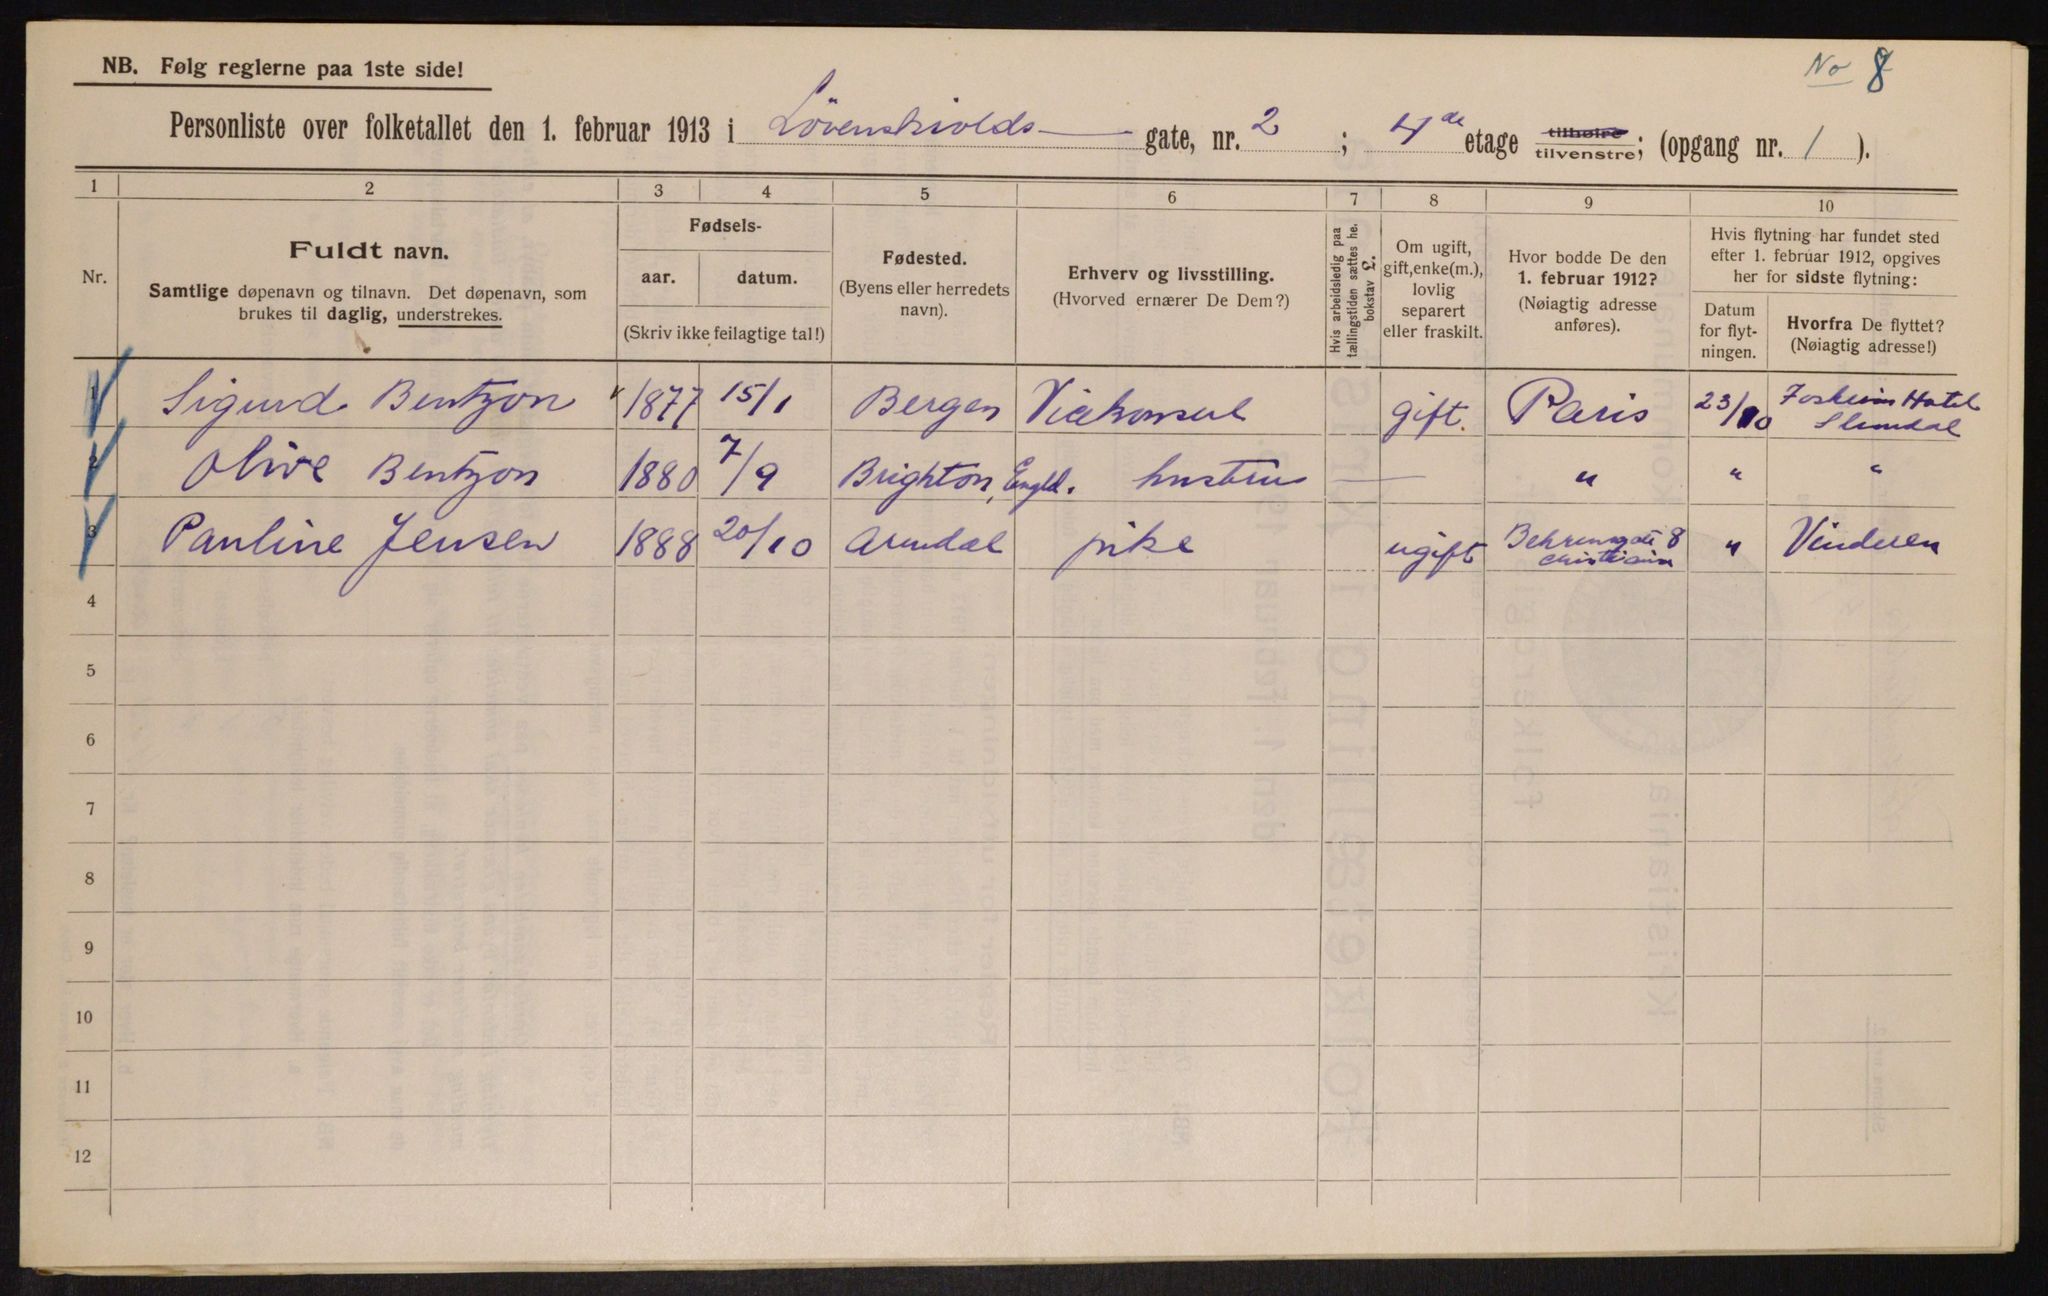 NB. Følg reglerne paa 1ste side!
No 8
Personliste over folketallet den 1. februar 1913 i Lövenskiolds gate, nr. 2 ; 4de etage tilhøire tilvenstre; (opgang nr. 1 ).
1 2 3 4 5 6 7 8 9 10
Nr.
Fuldt navn.
Samtlige døpenavn og tilnavn. Det døpenavn, som
brukes til daglig, understrekes.
Fødsels-
aar. datum.
(Skriv ikke feilagtige tal!)
Fødested.
(Byens eller herredets
navn).
Erhverv og livsstilling.
(Hvorved ernærer De Dem?)
Hvis arbeidsledig paa
tællingstiden sættes he.
bokstav L.
Om ugift,
gift, enke(m.),
lovlig
separert
eller fraskilt.
Hvor bodde De den
1. februar 1912?
(Nøiagtig adresse
anføres).
Hvis flytning har fundet sted
efter 1. februar 1912, opgives
her for sidste flytning:
Datum
for flyt-
ningen.
Hvorfra De flyttet?
(Nøiagtig adresse!)
1 Sigurd Bentzon 1877 15/1 Bergen Vicekonsul gift. Paris 23/10 Hotel
2 Olive Bentzon 1880 7/9 Brighton, Engld. hustru — " " "
3 Pauline Jensen 1888 20/10 Arendal pike ugift Behrensgate 8 " Vinderen
Christiania
4
5
6
7
8
9
10
11
12